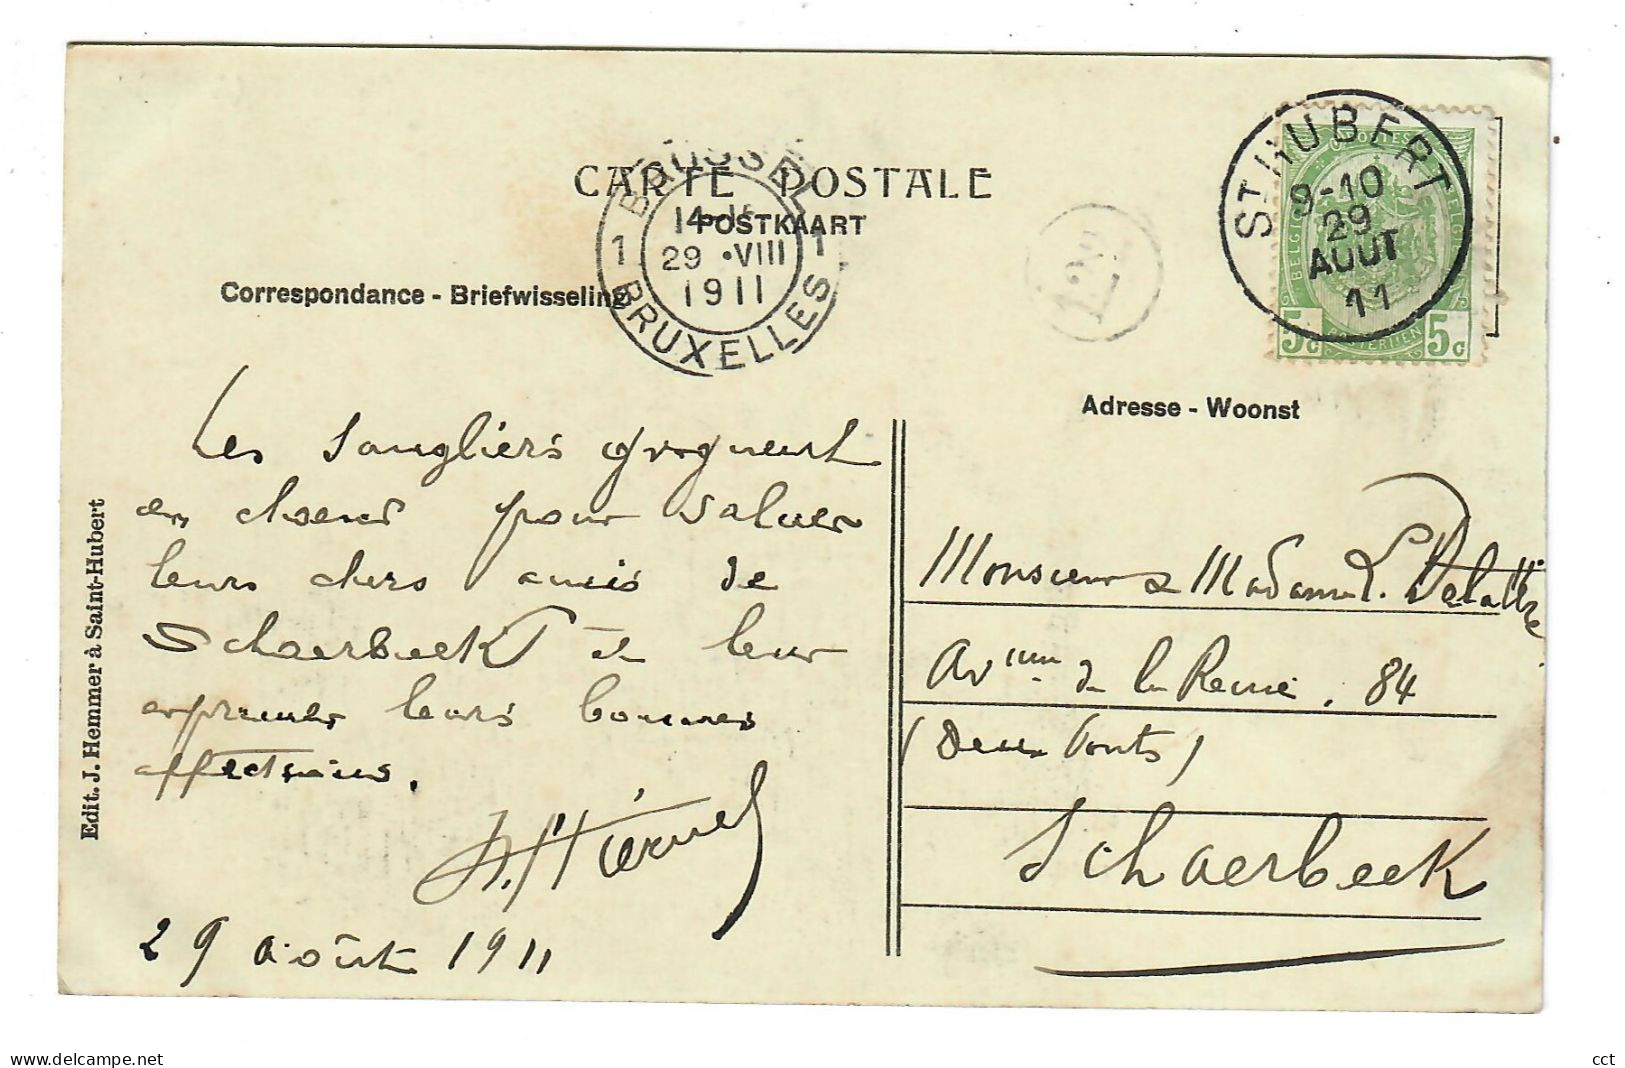 CARTE POSTALE
POSTKAART
Correspondance - Briefwisseling
BRUSSEL
14-15
29 ·VIII
1911
1 1
BRUXELLES
ST HUBERT
9-10
29
AOUT
11
5c 5c
Adresse - Woonst
Les Sangliers grognent
en choeur pour saluer
leurs chers amis de
Schaerbeek & leur
exprimer leurs bonnes
affections.
29 août 1911
Monsieur & Madame L. Delattre
Av de la Reine, 84
(Deux Ponts)
Schaerbeek
Edit. J. Hemmer à Saint-Hubert
www.delcampe.net
cct